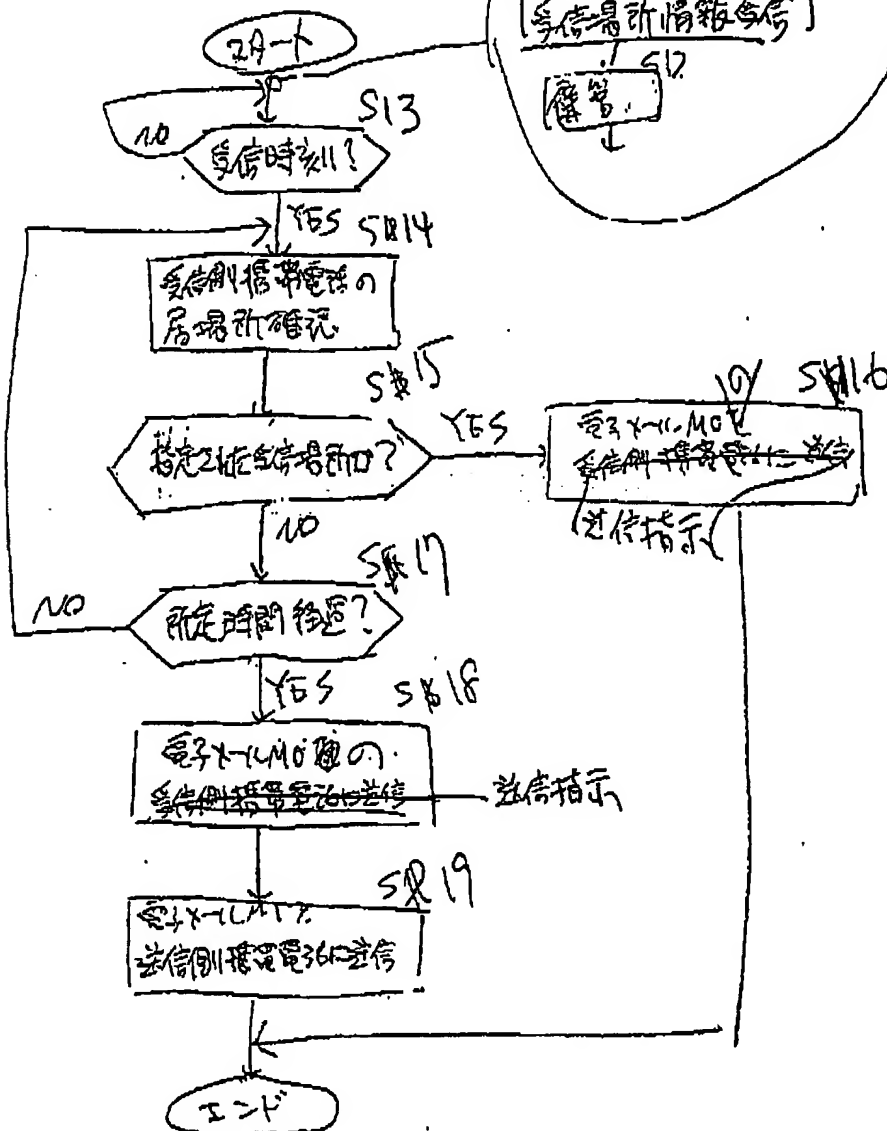 [受信場所情報受信]
S12
スタート
S13
NO
受信時刻?
YES S14
受信側携帯電話の
居場所確認
S15
指定された受信場所か?
YES
S16
電子メールM0の
受信側携帯電話に送信
送信指示
NO
S17
所定時間経過?
NO
YES
S18
電子メールM0の
受信側携帯電話に送信
送信指示
S19
電子メールM1を
送信側携帯電話に送信
エンド